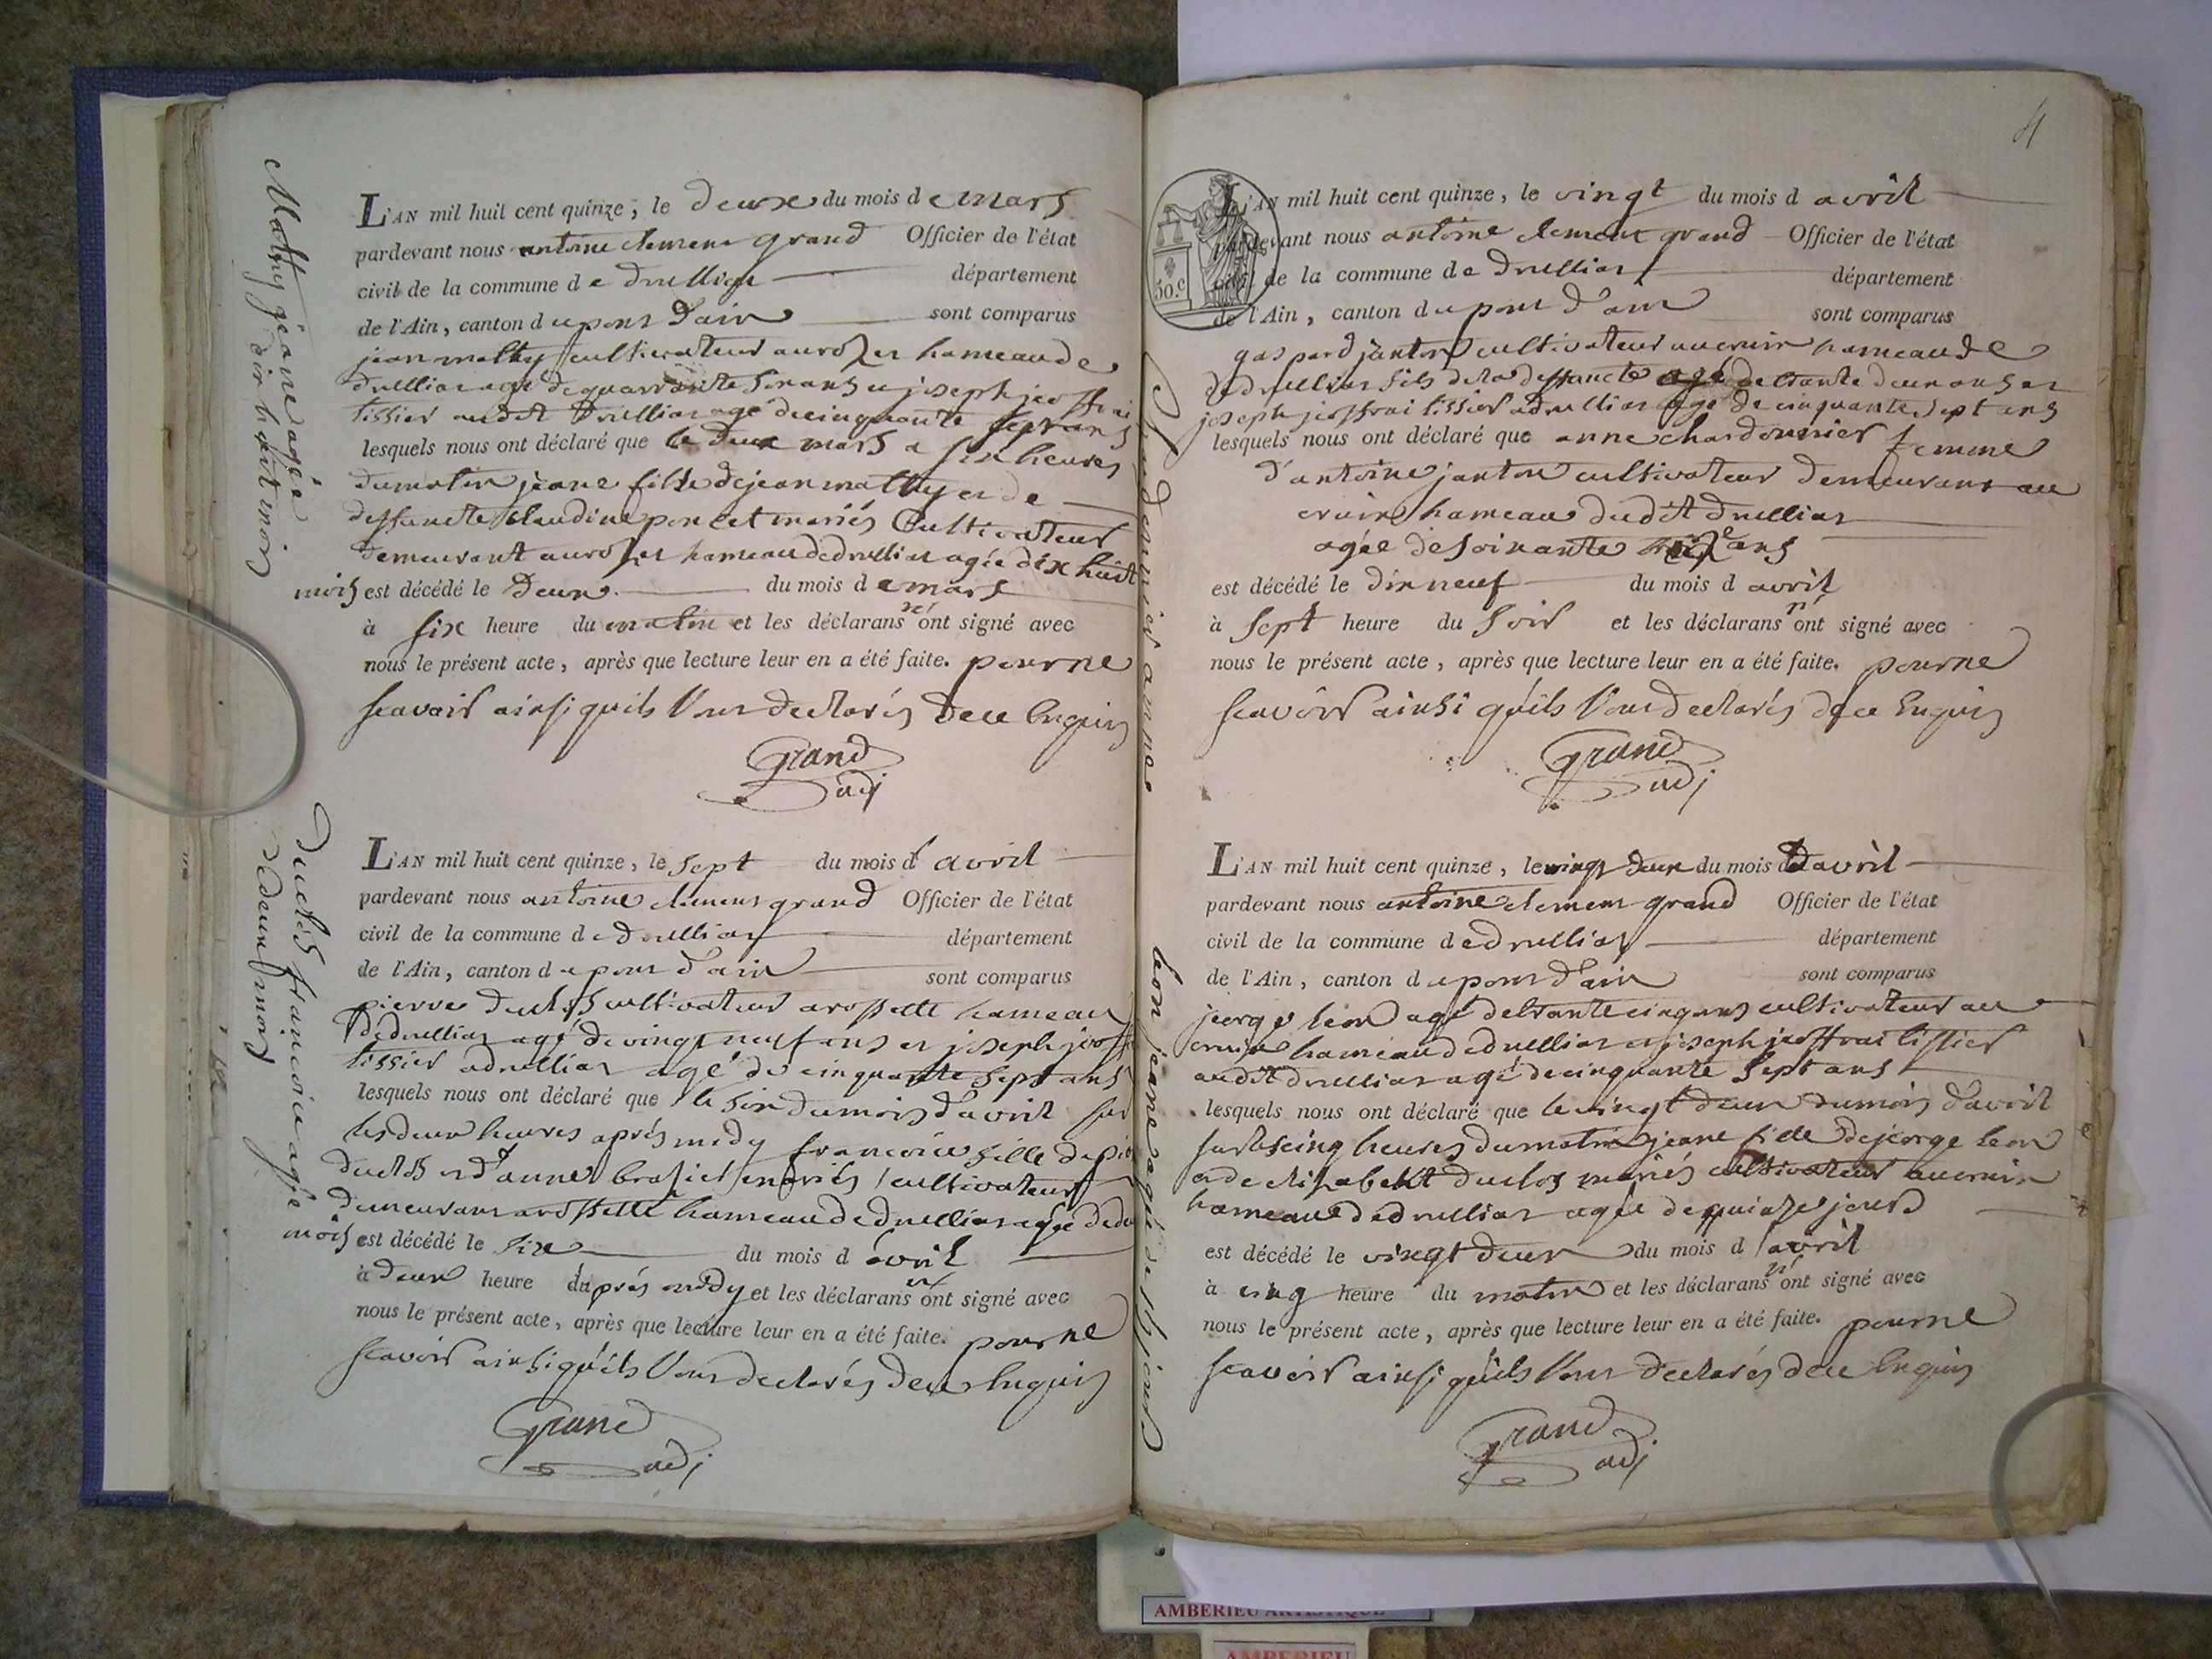 Mathy jeane agée
dix huit mois
L'AN mil huit cent quinze, le deux du mois de mars
pardevant nous antoine clement grand Officier de l'état
civil de la commune de druillias département
de l'Ain, canton du pont d'ain sont comparus
jean mathy cultivateur au hameau de
druillias agé de quarrante ans et joseph jeoffrai
tissier audit druillias agé de cinquante sept ans
lesquels nous ont déclaré que le deux mars a six heures
du matin jeane fille de jean mathy et de
deffuncte claudine poncet mariés cultivateur
demeurant au hameau de druillias agée dix huit
mois est décédé le deux du mois de mars
à six heure du matin et les déclarans n'ont signé avec
nous le présent acte, après que lecture leur en a été faite. pour ne
scavoir ainsi quils l'ont declarés de ce enquis
Grand
adj
duclos francoise agée
de deux mois
L'AN mil huit cent quinze, le sept du mois d'avril
pardevant nous antoine clement grand Officier de l'état
civil de la commune de druillias département
de l'Ain, canton du pont d'ain sont comparus
pierre duclos cultivateur a rossette hameau
de druillias agé de vingt neuf ans et joseph
tissier a druillias agé de cinquante sept ans
lesquels nous ont déclaré que le six du mois d'avril sur
les deux heures aprés midy francoise fille de
duclos et d'anne brasier mariés cultivateur
demeurant a rossette hameau de druillias agée de
mois est décédé le six du mois d avril
à deux heure du après midy et les déclarans n'ont signé avec
nous le présent acte, après que lecture leur en a été faite. pour ne
scavoir ainsi qu'ils l'ont declarés de ce enquis
Grand
adj
Chardonnier anne
L'AN mil huit cent quinze, le vingt du mois d avril
pardevant nous antoine clement grand Officier de l'état
civil de la commune de druillias département
de l'Ain, canton du pont d'ain sont comparus
50.c
gaspard janton cultivateur au cruix hameau de
de druillias fils de la deffuncte agé de trante deux ans et
joseph jeoffrai tissier a druillias agé de cinquante sept ans
lesquels nous ont déclaré que anne chardonnier femme
d'antoine janton cultivateur demeurant au
cruix hameau dudit druillias
agée de soixante ans
est décédé le dix neuf du mois d avril
à sept heure du soir et les déclarans n'ont signé avec
nous le présent acte, après que lecture leur en a été faite. pour ne
scavoir ainsi qu'ils l'ont declarés de ce enquis
Grand
adj
leon jeane agée de 15 jours
L'AN mil huit cent quinze, le vingt deux du mois d avril
pardevant nous antoine clement grand Officier de l'état
civil de la commune de druillias département
de l'Ain, canton du pont d'ain sont comparus
jeorge leon agé de trante cinq ans cultivateur au
cruix hameau de druillias et joseph jeoffrai tissier
audit druillias agé de cinquante sept ans
lesquels nous ont déclaré que le vingt deux du mois d'avril
sur les cinq heures du matin jeane fille de jeorge leon
et de elisabeht duclos mariés cultivateur au cruix
hameau de druillias agée de quinze jours
est décédé le vingt deux du mois d avril
à cinq heure du matin et les déclarans n'ont signé avec
nous le présent acte, après que lecture leur en a été faite. pour ne
scavoir ainsi qu'ils l'ont declarés de ce enquis
Grand
adj
AMBERIEU ARTISTIQUE
AMBERIEU